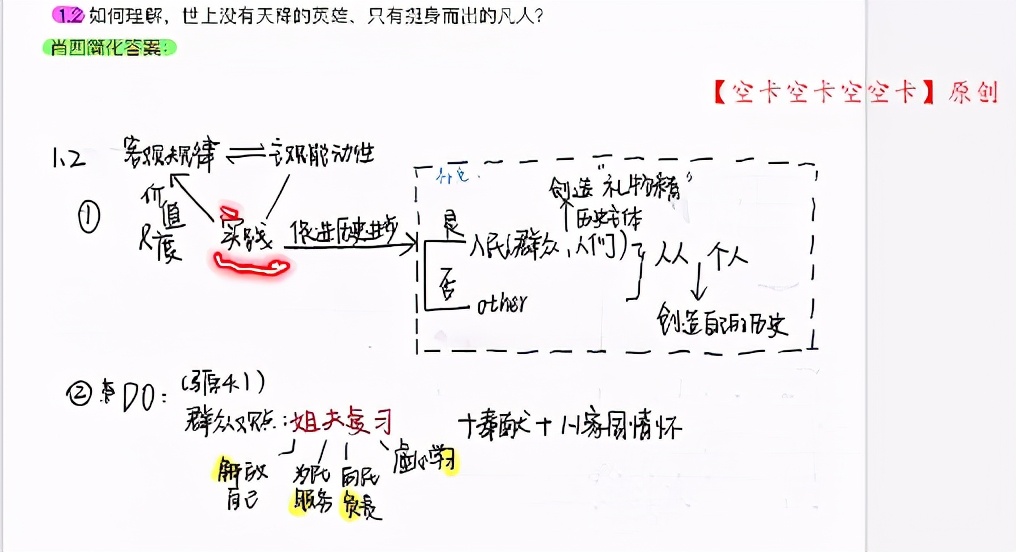 1.2 如何理解，世上没有天降的英雄、只有挺身而出的凡人？
肖四简化答案：
【空卡空卡空空卡】原创
1.2 客观规律 ⇌ 主观能动性
①
价值尺度
实践
促进历史进步
补充：
创造“礼物精”
历史主体
是
人民(群众，人们)
人人 个人
否
other
创造自己的历史
② DO：(强4.1)
群众观点：姐夫复习 +奉献+家国情怀
解放自己
为民服务
向民负责
虚心学习